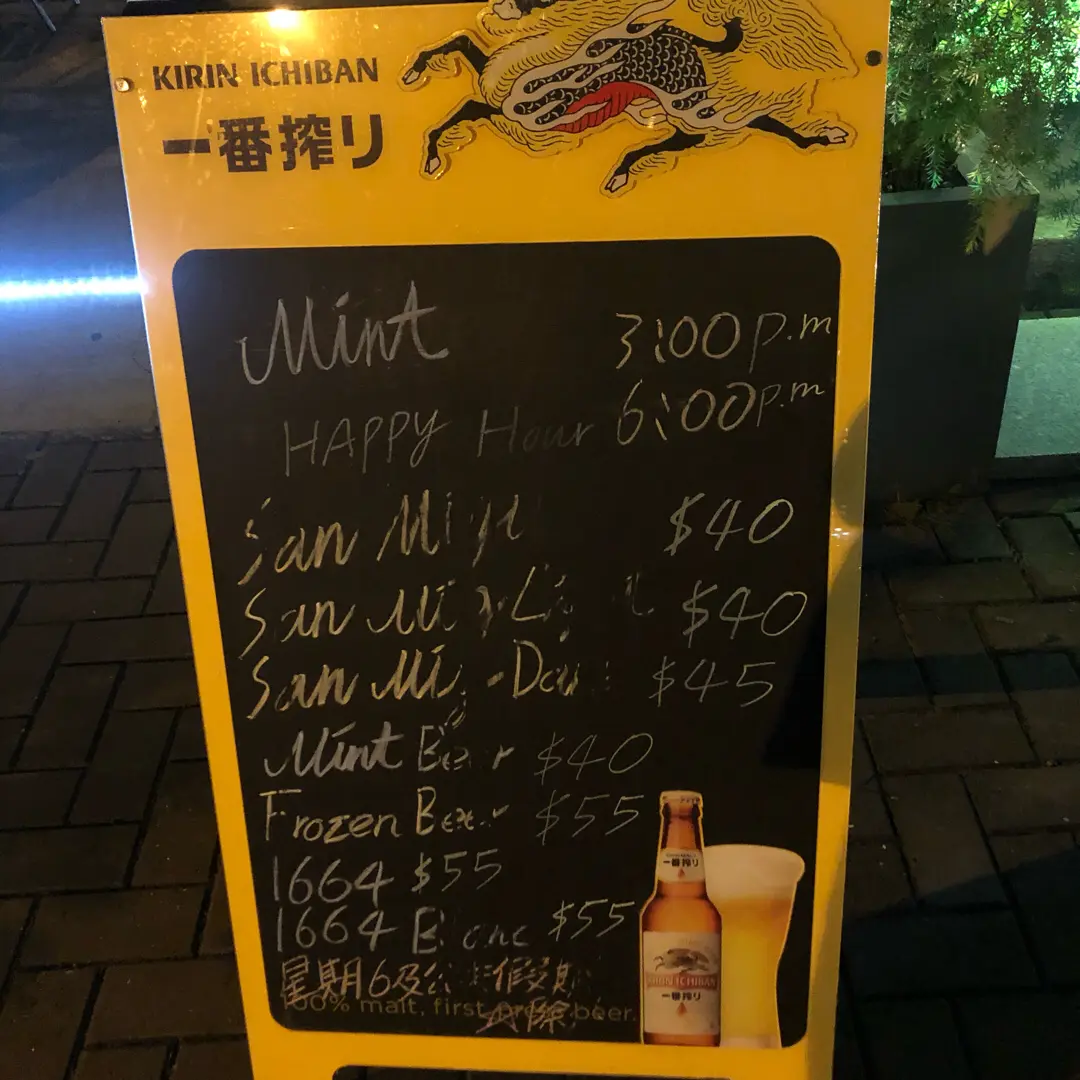 KIRIN ICHIBAN
一番搾り
Mint 3:00 p.m
HAPPY Hour 6:00 p.m
San $40
San $40
San $45
Mint Beer $40
Frozen Beer $55
1664 $55
1664 $55
星期6及公 假期
100% malt, first press beer.
除
一番搾り
KIRIN ICHIBAN
一番搾り